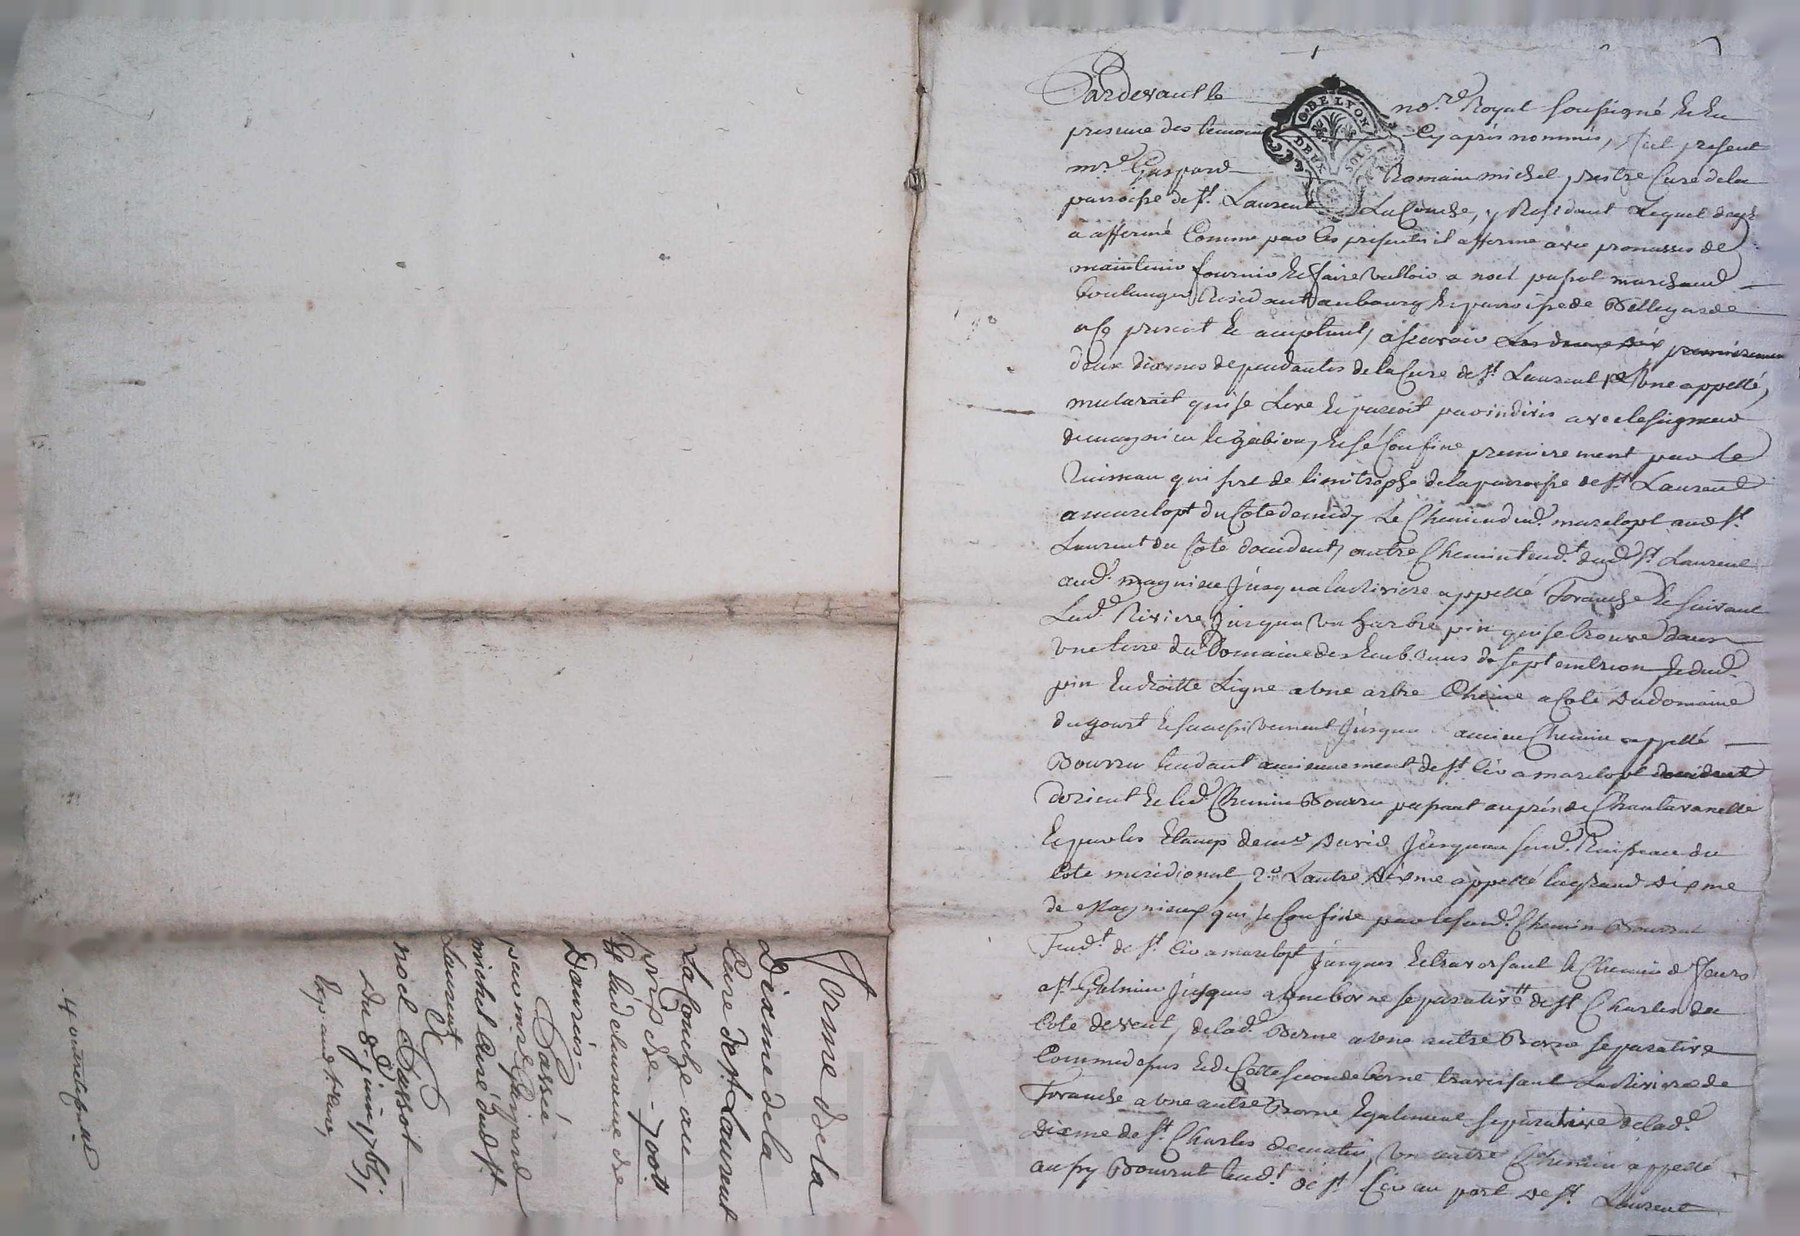 Pardevant le no.re Royal soussigné et en
presence des temoins cy apres nommés, fut present
m.re Gaspard Romain michel prêtre Curé de la
parroisse de st. Laurent La Conche, y Residant Lequel de gré
a affermé Comme par les presentes il afferme avec promesses de
maintenir fournir et faire valloir a noel pussot marchand
boulanger Residant au bourg et parroisse de Bellegarde
icy present et acceptant, a sçavoir premierement
deux dixmes dependantes de la Cure de st. Laurent l'une appellé,
qui se Leve et perçoit par indivis avec le seigneur
de magnieu le gabion, et se Confine premierement par le
Ruisseau qui sert de limitrophe de la parroisse de st. Laurent
a marclopt du Coté de midy Le Chemin du d. marclopt aud. st.
Laurent du Coté d'occident, autre Chemin tend.t dud. st. Laurent
aud. magnieu jusqua la Riviere appellé Toranche et suivant
Lad. Riviere jusqua un harbre pin qui se trouve dans
une terre du Domaine des de septemtrion et dud.
pin en droitte Ligne a une arbre Chêne a Coté du domaine
du gourt et successivement jusqua ancien Chemin appellé
Bourru tendant anciennement de st. Cir a marclopt
d'orient et led. Chemin Bourru passant auprés de Chantaranelle
et par les Etangs de mr. David jusqu'au susd. Ruisseau du
Coté meridional, 2.o L'autre dixme appellé la grand dixme
de Magnieu, qui se Confine par le susd. Chemin Bourrut
Tend.t de st. Cir a marclopt jusques et traversant le Chemin de feurs
a st. Galmier jusques a une borne separative de st. Charles du
Coté de vent, de lad. Borne a une autre Borne separative
Comme dessus et de Cette seconde borne traversant La Riviere de
Toranche a une autre Borne Egalement separative de lad.
Dixme de st. Charles de matin, un autre Chemin appellé
aussy Bourrut tend.t de st. Cir au port de st. Laurent
Ferme de la
Dixme de la
Cure de st. Laurent
La Conche au
prix de - 700 tt
et
Danrées -
Passé
par mre Gaspard
michel Curé dud. st.
Laurent
A
noel Pussot
Du 8. juin 1765,
G DE LYON
DEUX SOLS